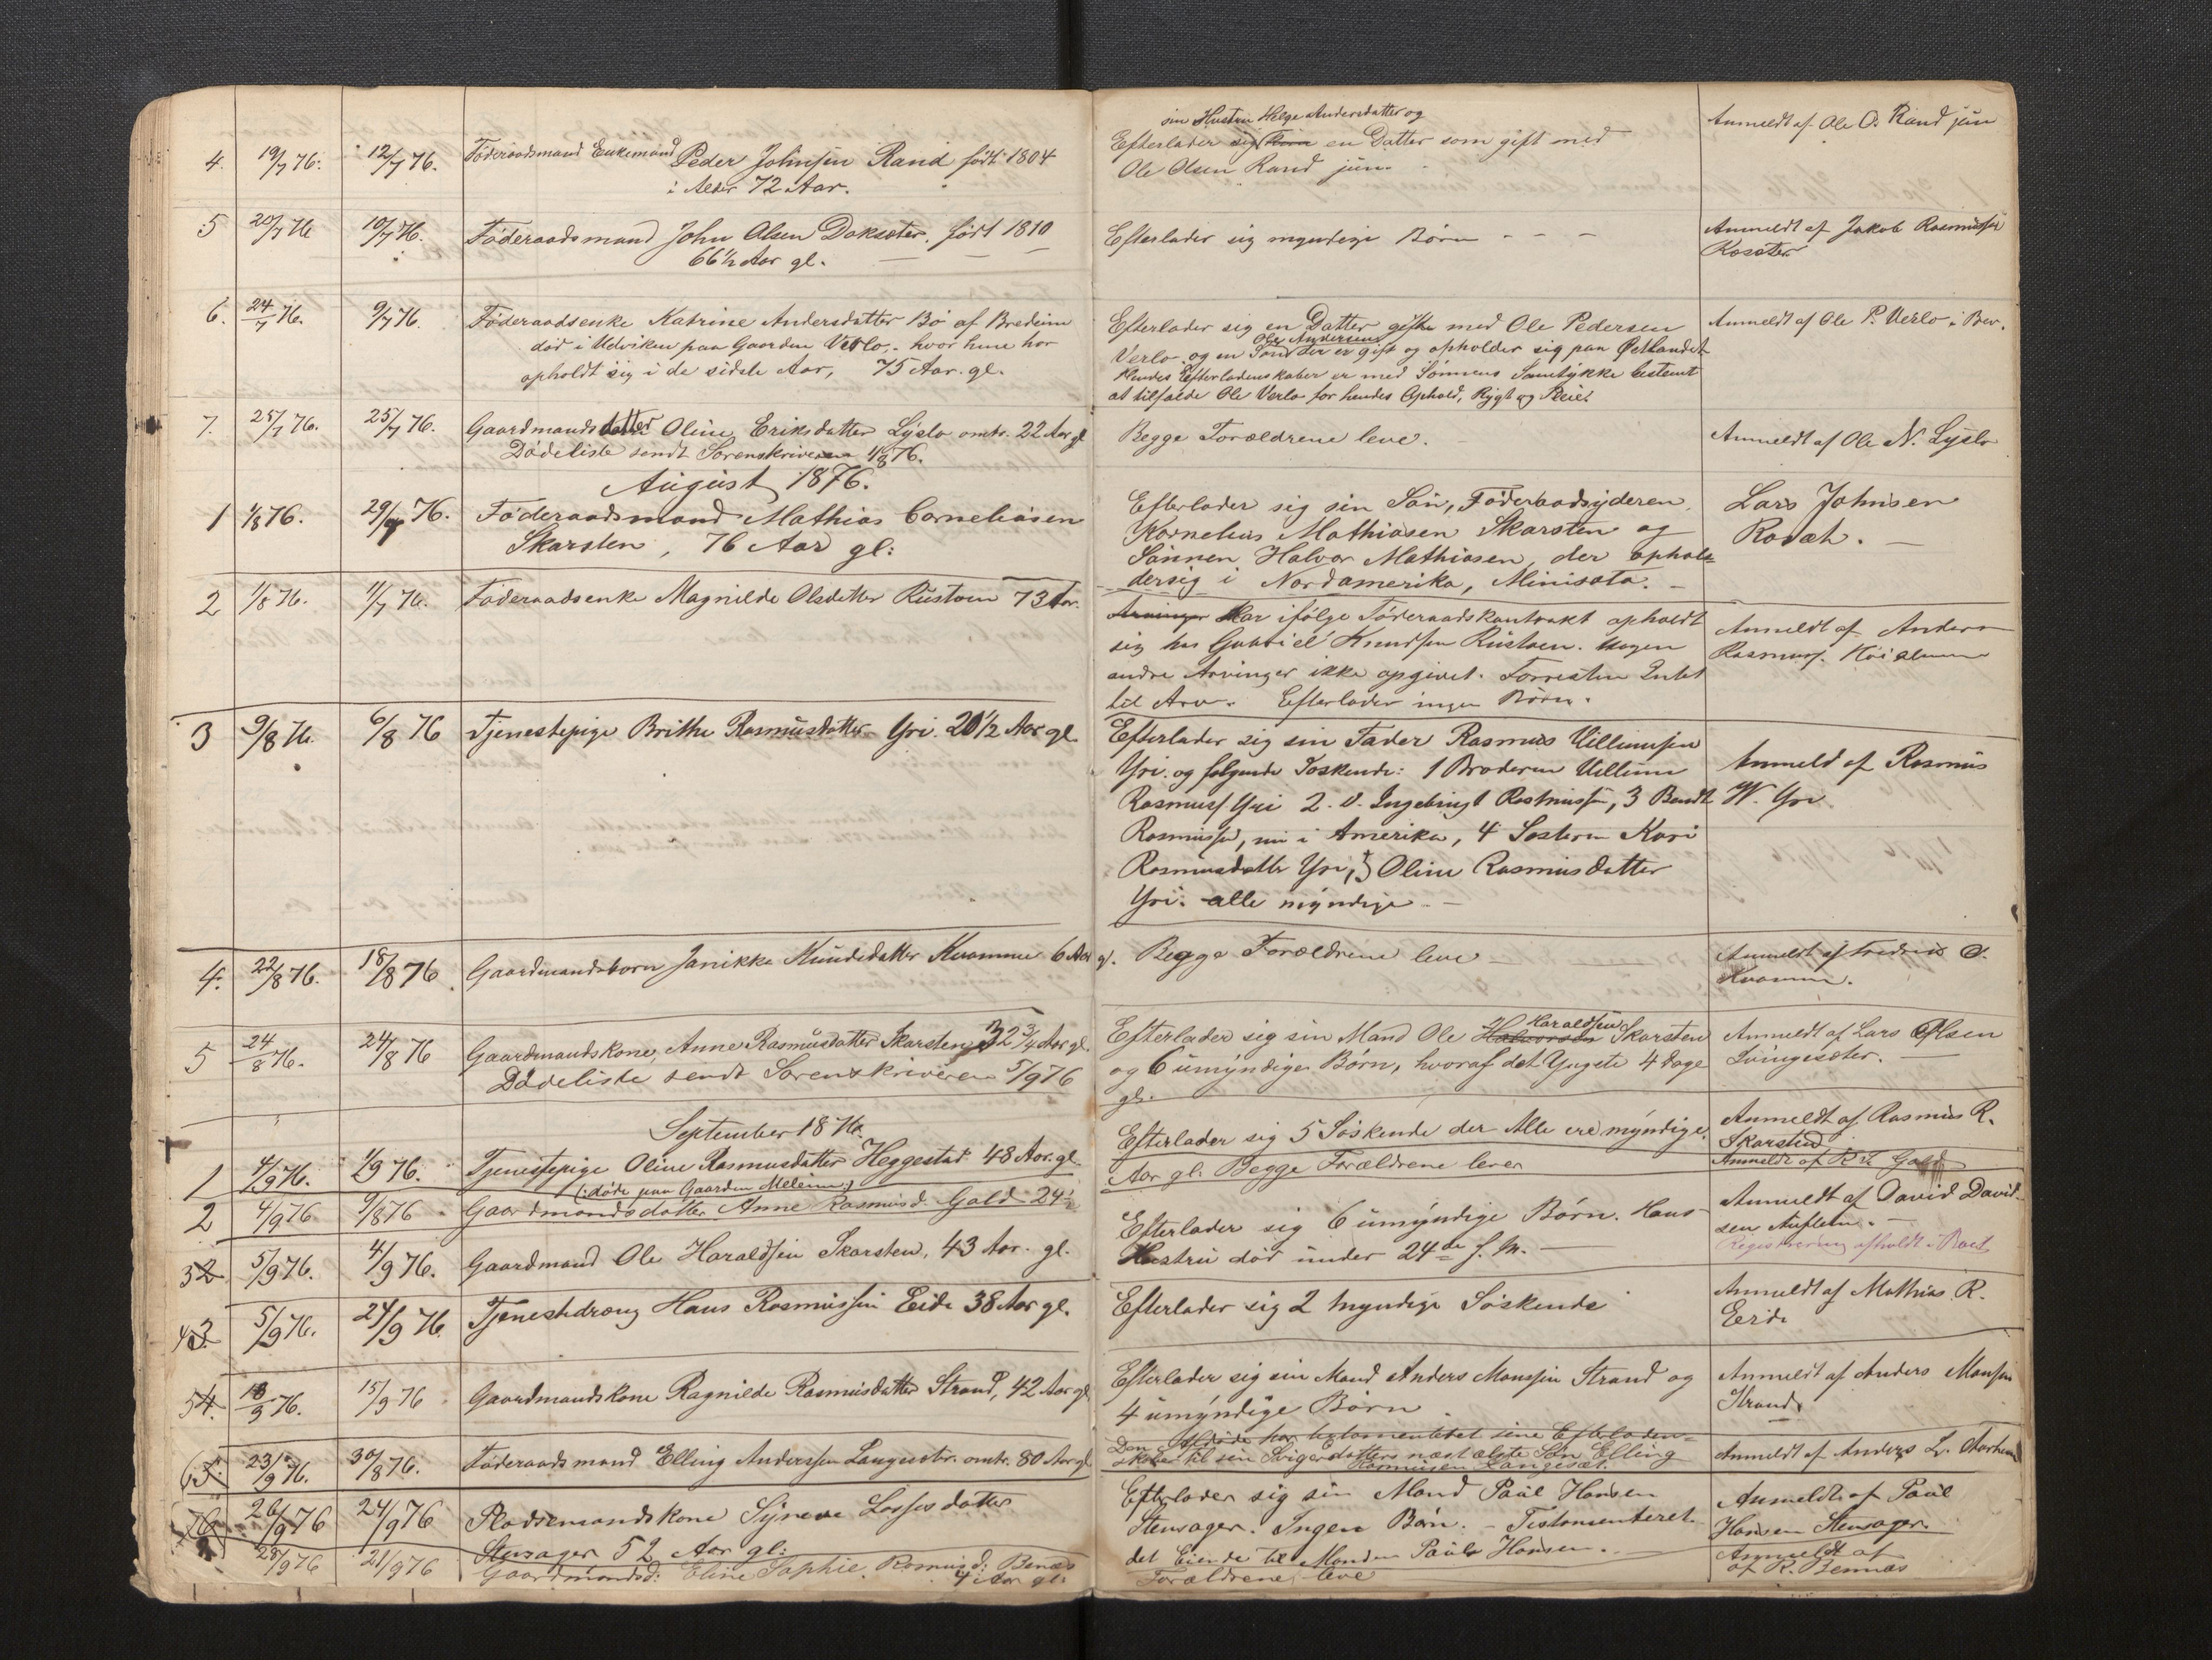 4. 19/7 76. 12/7 76. Föderaadsmand Enkemand Peder Johnsen Rand født 1804
i Alder 72 Aar.
sin Hustru Helge Andersdatter og
Efterlader sig en Datter som gift med
Ole Olsen Rand jun.
Anmeldt af Ole O. Rand jün
5 20/7 76 10/7 76. Föderaadsmand John Olsen Doksæter. født 1810
66 1/2 Aar gl.
Efterlader sig myndige Børn
Anmeldt af Jakob Rasmussen
6. 24/7 76. 9/7 76. Föderaadsenke Katrine Andersdatter Bö af Bredeim
död i Udviken paa Gaarden Verlo, hvor hun har
opholdt sig i de sidste Aar, 75 Aar. gl.
Efterlader sig en Datter gift med Ole Pedersen
Ole Andersen
Verlo og en Søn der er gift og opholder sig paa Østlandet
Hendes Efterladenskaber er med Sönnens Samtykke bestemt
at tilfalde Ole Verlo for hendes Ophold, Rygt og Pleie.
Anmeldt af Ole P. Verlo i Brev.
7. 25/7 76. 25/7 76. Gaardmandsdatter Oline Eriksdatter Lyslo omtr. 22 Aar gl
Dödeliste sendt Sorenskriveren 1/8 76.
Begge Forældrene leve.
Anmeldt af Ole N. Lyslo
August 1876.
1 1/8 76. 29/7 76. Föderaadsmand Mathias Corneliasen
Skarsten, 76 Aar gl:
Efterlader sig sin Sön, Föderaadsyderen
Kornelius Mathiasen Skarsten og
Sönnen Halvor Mathiasen der ophol-
dersig i Nordamerika, Minisota.
Lars Johnsen
2 1/8 76. 11/7 76. Föderaadsenke Magnilde Olsdatter Rustoen 73 Aar.
Arvinger Har ifölge Föderaadskontrakt opholdt
sig hos Gabriel Knudsen Rustoen. Nogen
andre Arvinger ikke opgivet. Forresten Intet
til Arv. Efterlader ingen Børn.
Anmeldt af Anders
3 9/8 76. 6/8 76 Tjenestepige Brithe Rasmusdatter Yri. 20 1/2 Aar gl
Efterlader sig sin Fader Rasmus Villumsen
Yri. og følgende Søskende: 1 Broderen Villum
Rasmuss Yri 2. d. Ingebrigt Rasmussen, 3 Bendt
Rasmussen, nu i Amerika, 4 Søstern Kari
Rasmusdatter Yri, 5 Oline Rasmusdatter
Yri. alle myndige.
Anmeld af Rasmus
W. Yri
4. 22/8 76. 18/8 76. Gaardmandsbarn Janikke Knudsdatter Kvamme 6 Aar
gl. Begge Forældrene leve
Anmeldt af Fredrik O.
Kvamme.
5 24/8 76. 24/8 76 Gaardmandskone, Anne Rasmusdatter Skarsten, 32 3/4 Aar gl.
Dödeliste sendt Sorenskriveren 5/9 76
Haraldsen
Efterlader sig sin Mand Ole Halvorsen Skarsten
og 6 umyndige Børn, hvoraf det Yngste 4 Dage
gl.
Anmeldt af Lars Olsen
September 1876.
1 4/9 76. 1/9 76. Tjenestepige Oline Rasmusdatter Heggestad 48 Aar. gl
(: døde paa Gaarden Meleim:)
Efterlader sig 5 Söskende der Alle ere myndige.
Anmeldt af Rasmus R.
Skarsten
2 4/9 76 9/8 76 Gaardmandsdatter Anne Rasmusd. Gald 24 1/2
Aar gl. Begge Forældrene lever
Anmeldt af R. Gald
32 5/9 76. 4/9 76. Gaardmand Ole Haraldsen Skarsten, 43 Aar. gl.
Efterlader sig 6 umyndige Børn. Hans
Hustru död under 24de f. M.
Anmeldt af David David-
sen Auflem.
Registrering afholdt i Boet
43. 5/9 76. 24/9 76 Tjenestedreng Hans Rasmussen Eide 38 Aar gl.
Efterlader sig 2 myndige Söskende
Anmeldt af Mathias R.
Eide
54. 18/9 76. 15/9 76 Gaardmandskone Ragnilde Rasmusdatter Strand, 42 Aar gl
Efterlader sig sin Mand Anders Monsen Strand og
4 umyndige Børn
Anmeldt af Anders Monsen
Strand.
65. 23/9 76. 30/8 76. Föderaadsmand Elling Anderssen Langesæt. omtr. 80 Aar gl
Den Afdöde har testamentet sine Efterladen-
skaber til sin Svigerdatters næst ælste Søn Elling
Rasmusen Langesæt.
Anmeldt af Anders L. Aarhem
76 26/9 76 24/9 76 Pladsemandskone Synneve Losse datter
Stensager 52 Aar gl:
Efterlader sig sin Mand Paul Hansen
Stensager. Ingen Børn. - Testamenteret
det Eiende til Manden Paul Hansen.
Anmeldt af Paul
Hansen Stensager.
28/9 76 21/9 76 Gaardmandsd: Eline Sophie Rasmusd: Bennæs
4 Aar gl:
Forældrene leve
Anmeldt af
af R. Bennæs